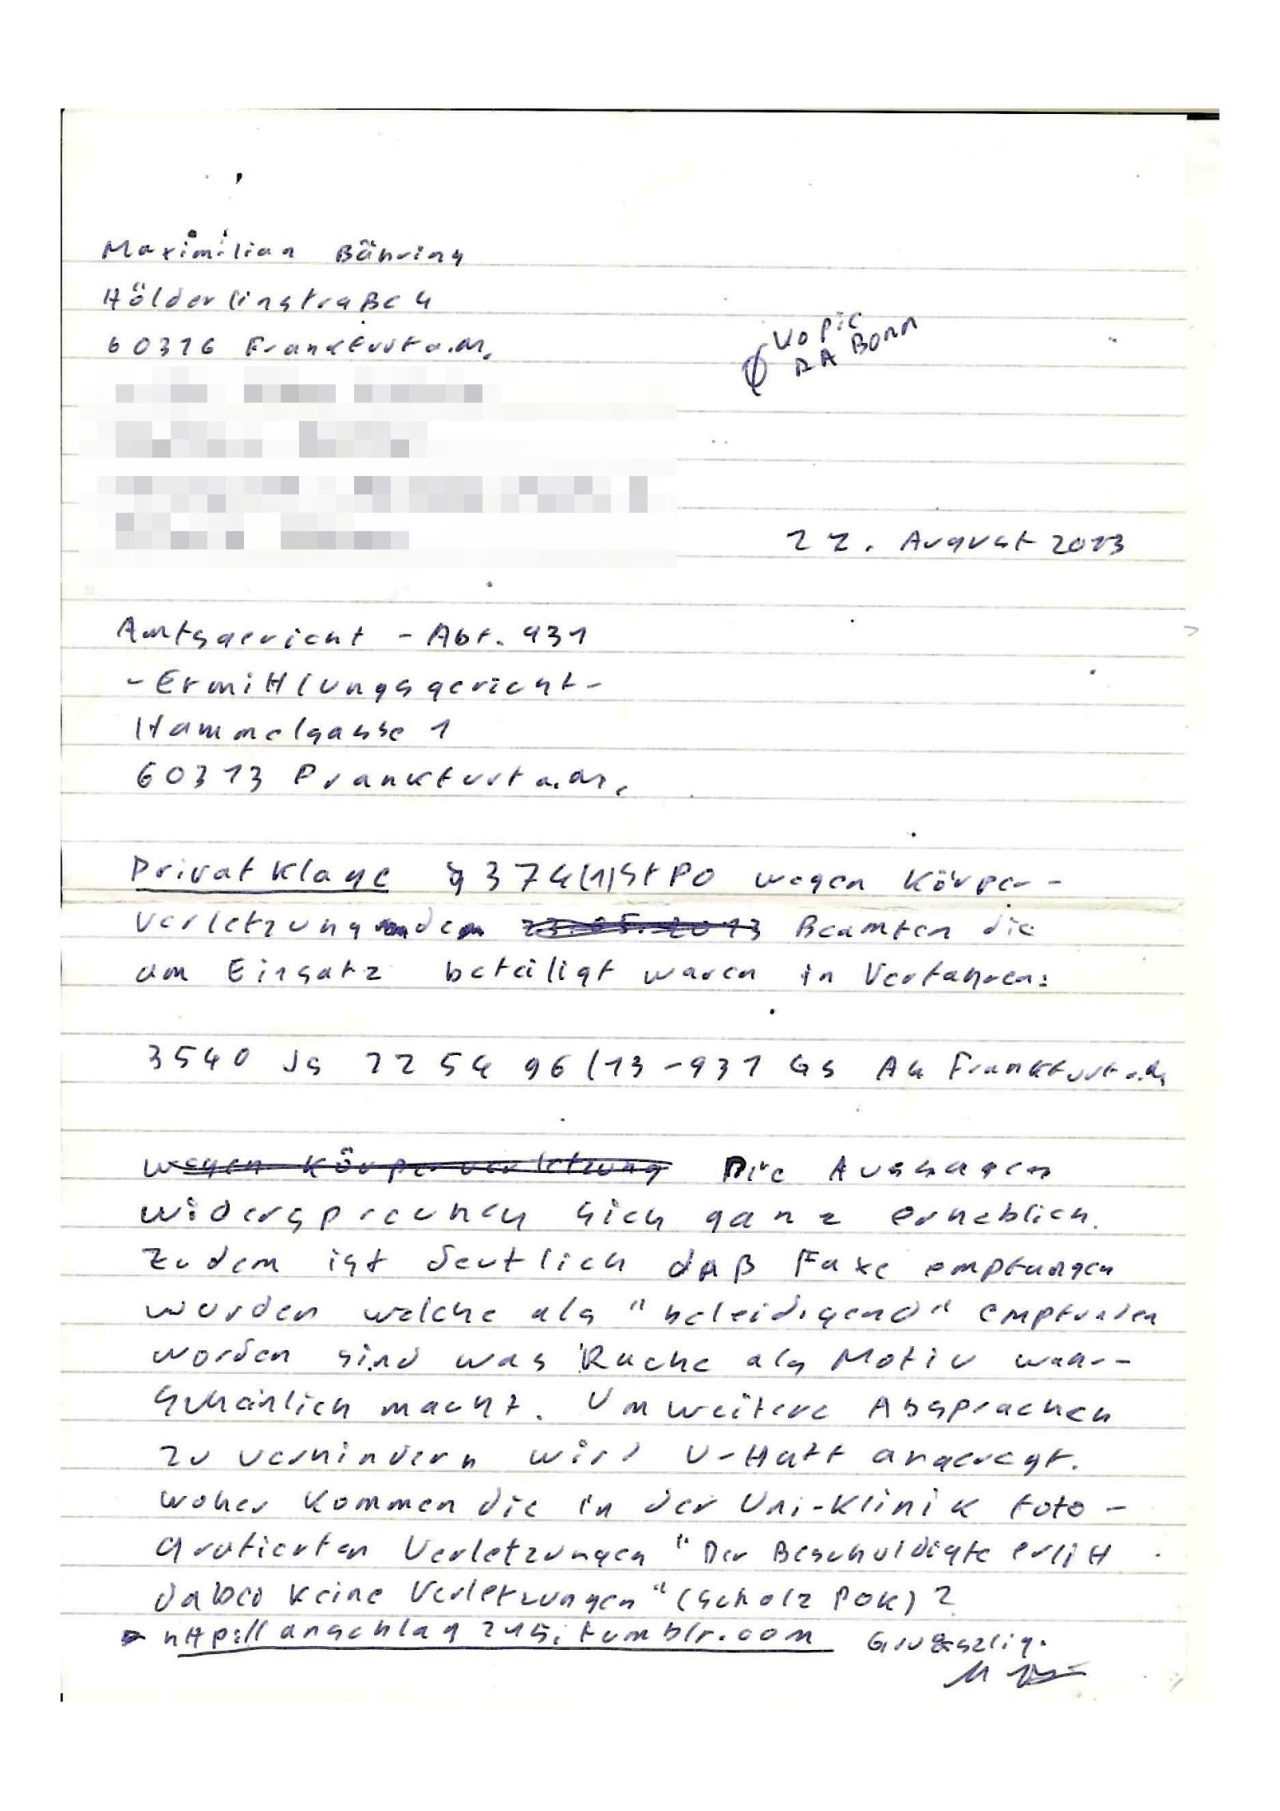 Maximilian Bähring
Hölderlinstraße 4
60316 Frankfurt a.M.
Kopie
RA Bonn
22. August 2013
Amtsgericht - Abt. 931
- Ermittlungsgericht -
Hammelgasse 1
60313 Frankfurt a.M.
Privatklage § 374(1)StPO wegen Körper-
verletzung an den 23.05.2013 Beamten die
am Einsatz beteiligt waren in Verfahren:
3540 Js 2254 96/13 - 931 Gs AG Frankfurt a.M.
wegen Körperverletzung Die Aussagen
widersprechen sich ganz erheblich.
Zudem ist deutlich daß Faxe empfangen
wurden welche als "beleidigend" empfunden
worden sind was Rache als Motiv wahr-
scheinlich macht. Um weitere Absprachen
zu verhindern wird U-Haft angeregt.
Woher kommen die in der Uni-Klinik foto-
grafierten Verletzungen "Der Beschuldigte erlitt
dabei keine Verletzungen" (Scholz POK)?
http://anschlag215.tumblr.com